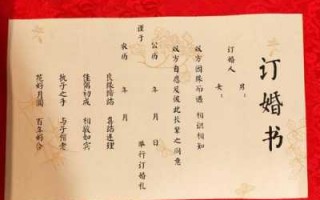 订婚书
订婚人
男：
女：
双方因缘相遇 相识相知
双方自愿 彼此长辈之同意
谨于
公历 年 月 日
农历 年 月 举行订婚礼
良缘缔结 喜结连理
佳偶初成 相敬如宾
执子之手 与子偕老
花好月圆 百年好合